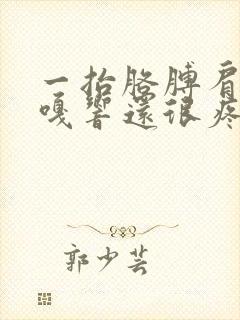 一抬胳膊肩
嘎響還很疼
郭少芸